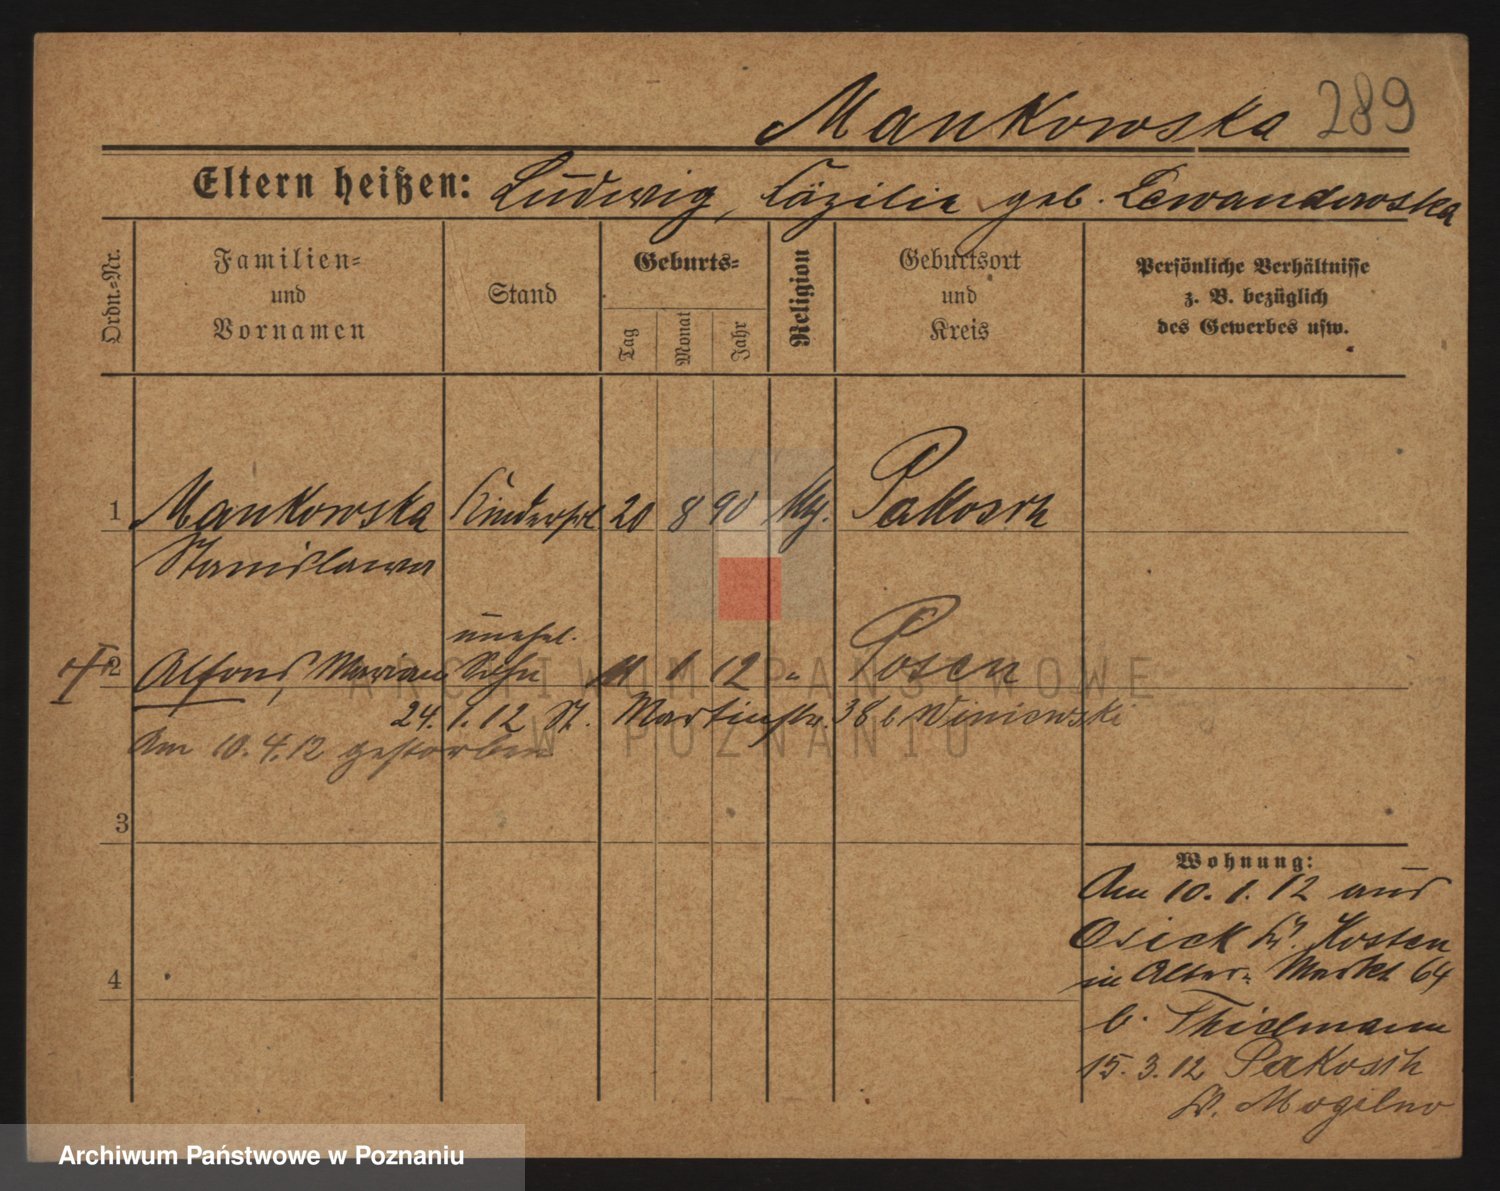 Mankowska 289
Eltern heißen: Ludwig, Cäzilie geb. Lewandowska
Ordn.-Nr.
Familien-
und
Vornamen
Stand
Geburts-
Tag
Monat
Jahr
Religion
Geburtsort
und
Kreis
Persönliche Verhältnisse
z. B. bezüglich
des Gewerbes usw.
1 Mankowska Kinderfrl 20 8 90 Pakosch
Stanislawa
unehel.
2 Alfons, Marian Sohn 11 1 12 " Posen
24. 1. 12 St. Martinstr. 38 b Winiewski
Am 10. 4. 12 gestorben
3
4
Wohnung:
Am 10. 1. 12 aus
Osieck Kr. Kosten
in Alter- Markt 64
b. Thielmann
15. 3. 12 Pakosch
Kr. Mogilno
ARCHIWUM PAŃSTWOWE
W POZNANIU
Archiwum Państwowe w Poznaniu